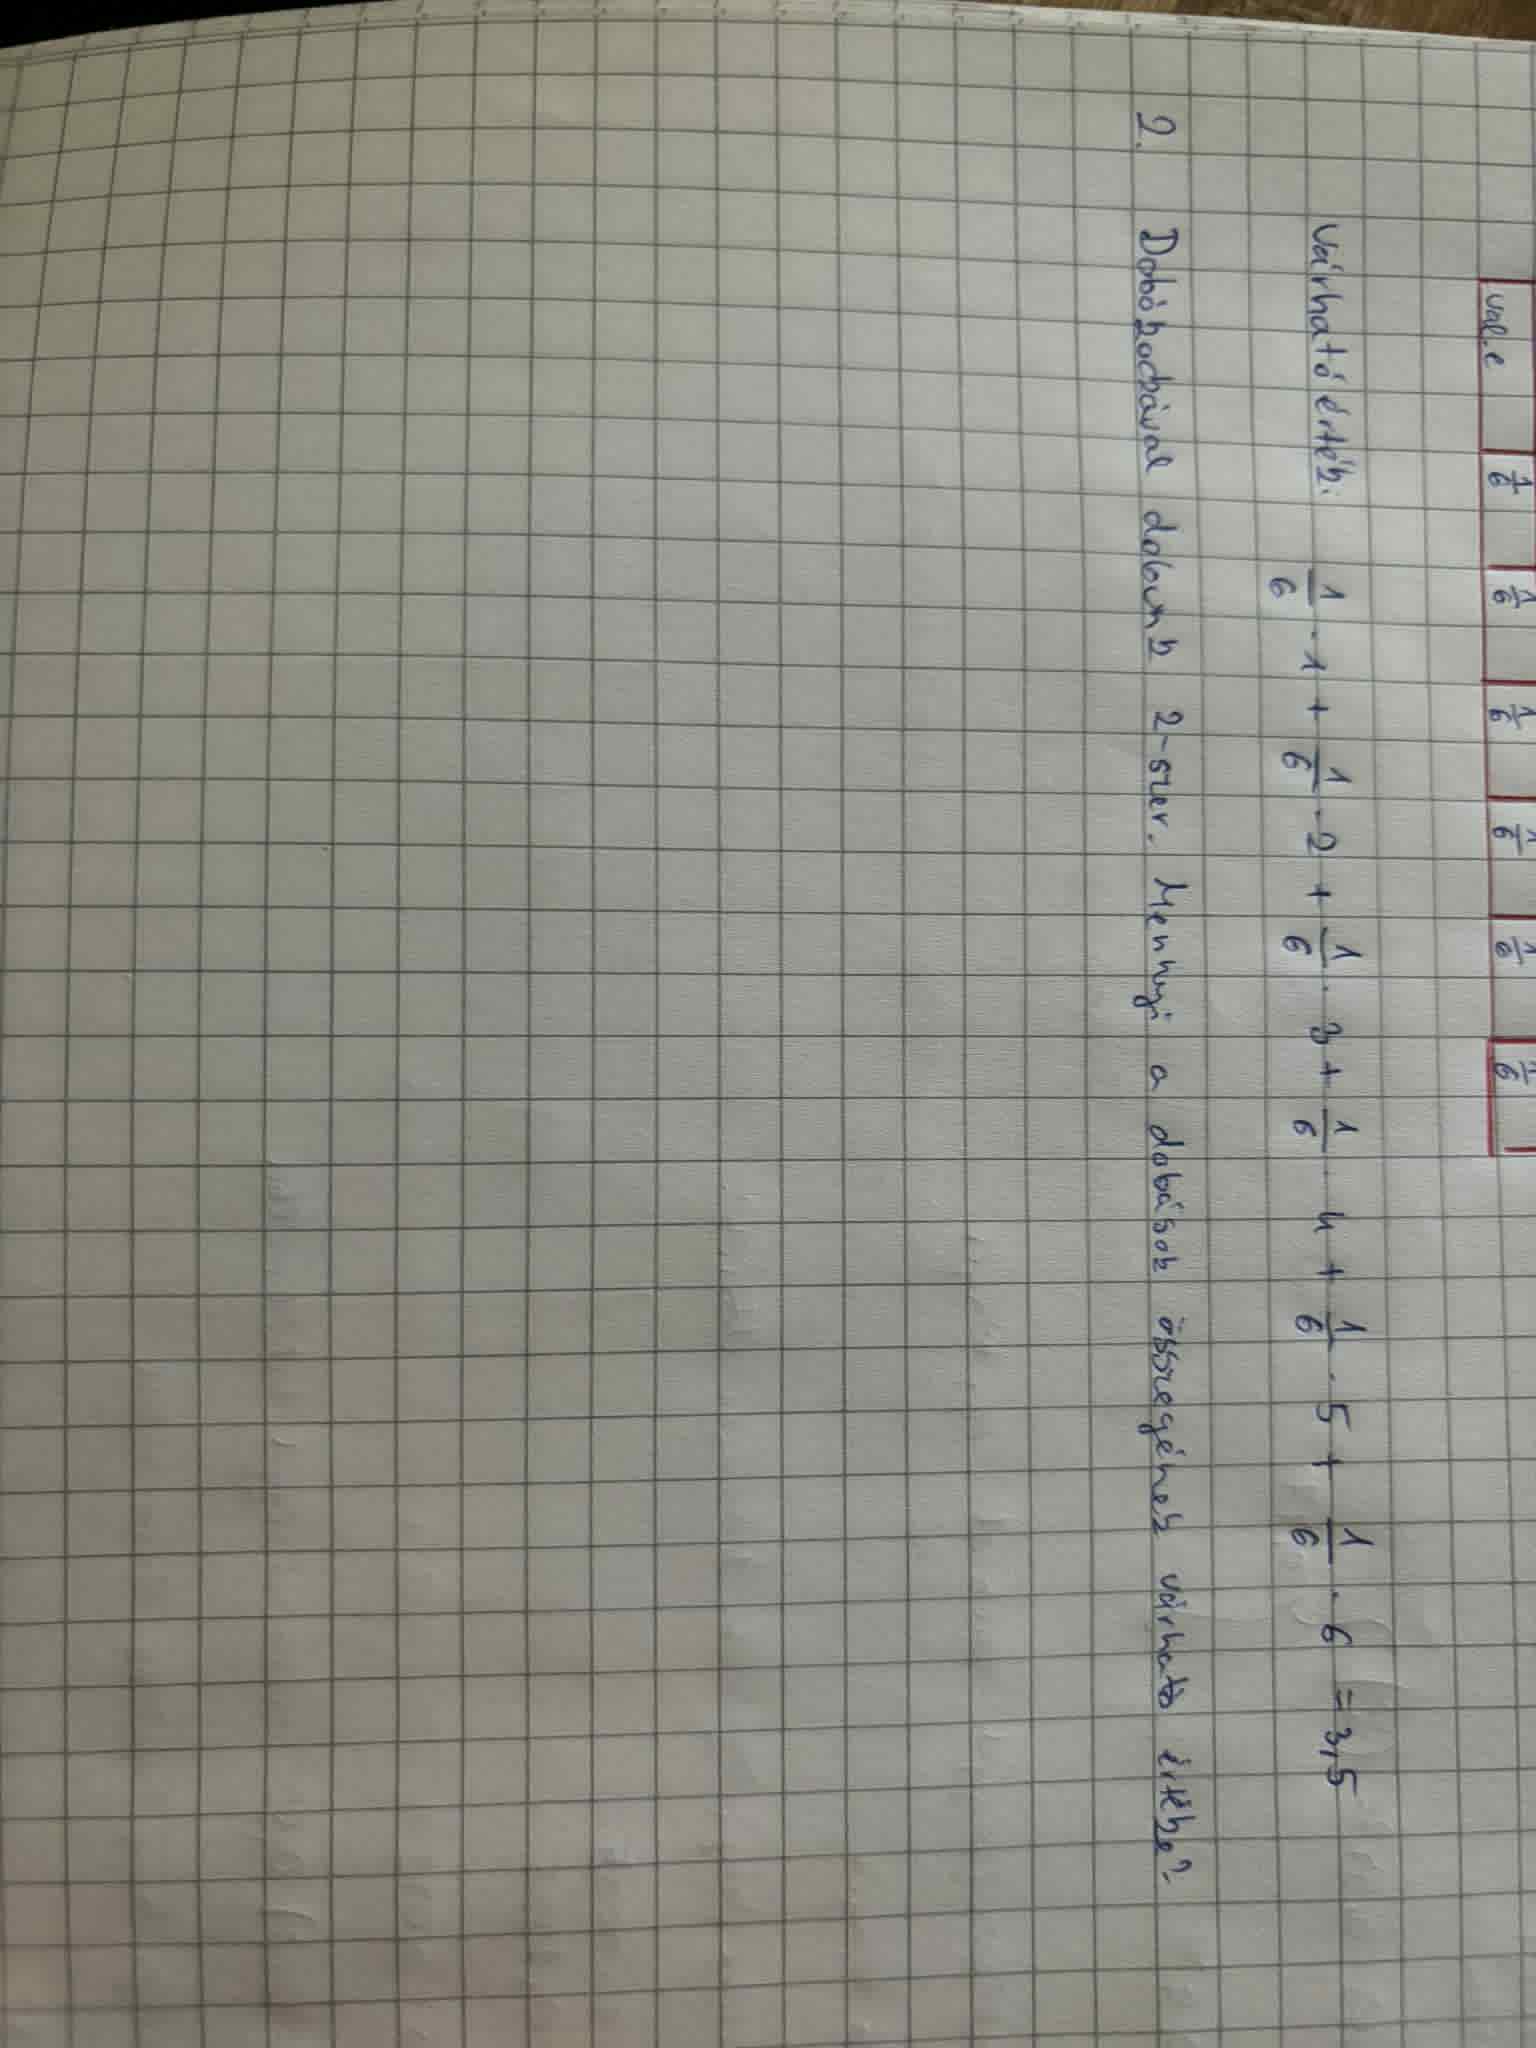 val.e 1/6 1/6 1/6 1/6 1/6 1/6
Várható érték: 1/6 · 1 + 1/6 · 2 + 1/6 · 3 + 1/6 · 4 + 1/6 · 5 + 1/6 · 6 = 3,5
2. Dobókockával dobunk 2-szer. Mennyi a dobások összegének várható értéke?